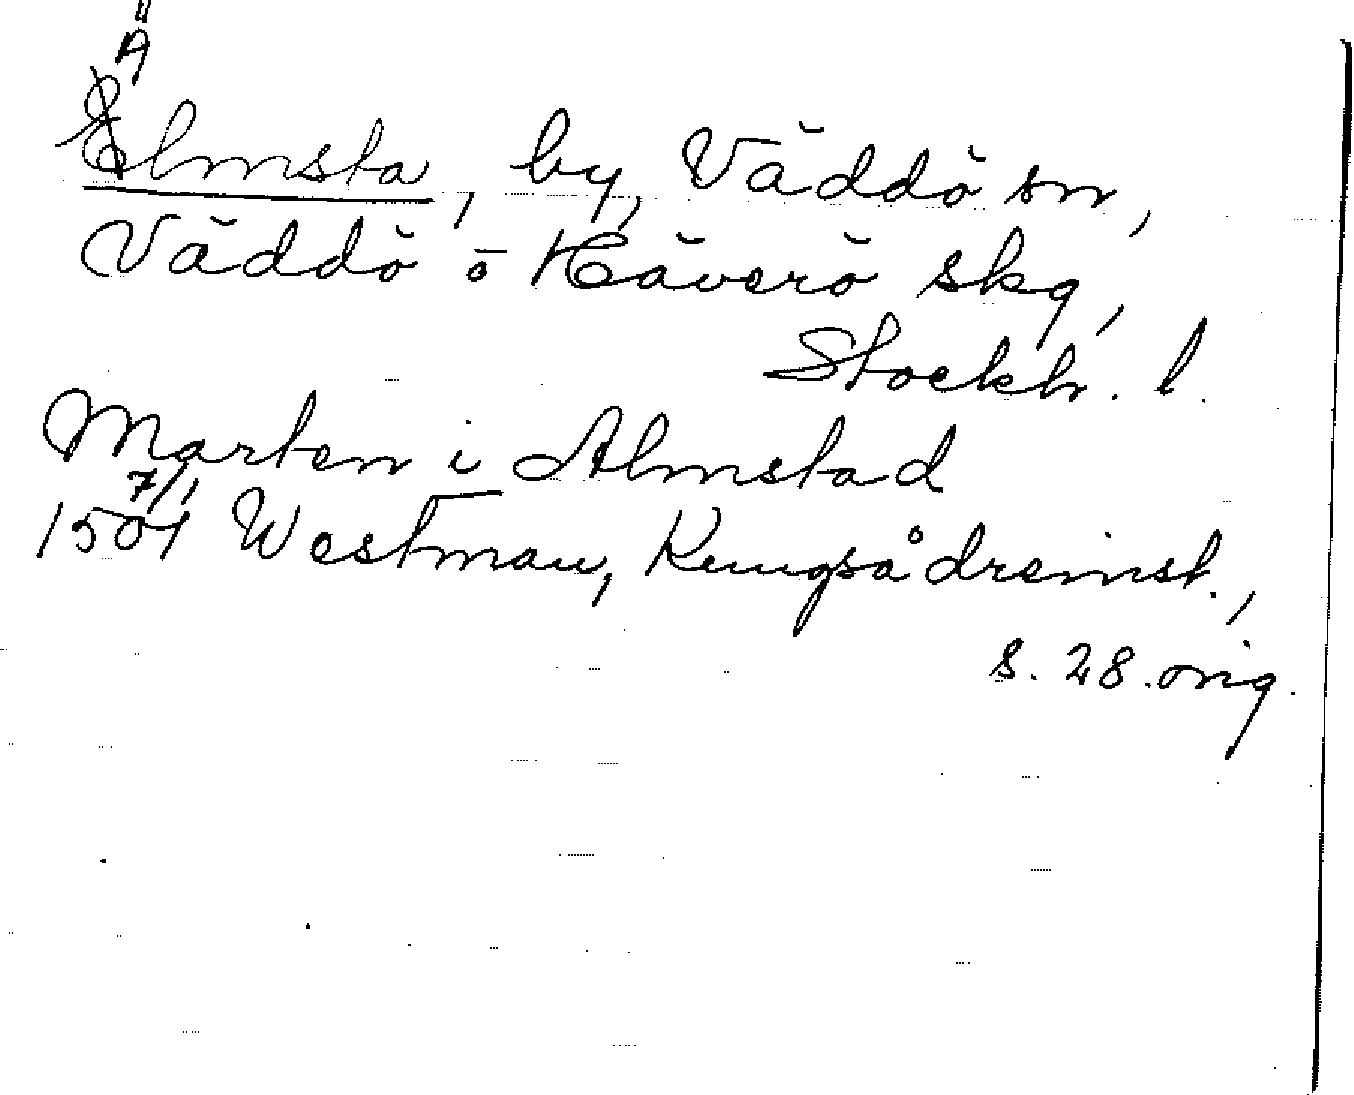 Ä
Elmsta, by, Väddö sn,
Väddö o Häverö skg,
Stockh. l.
Marten i Almstad
7/1
1504 Westman, Kungsådreinst.,
s. 28. orig.